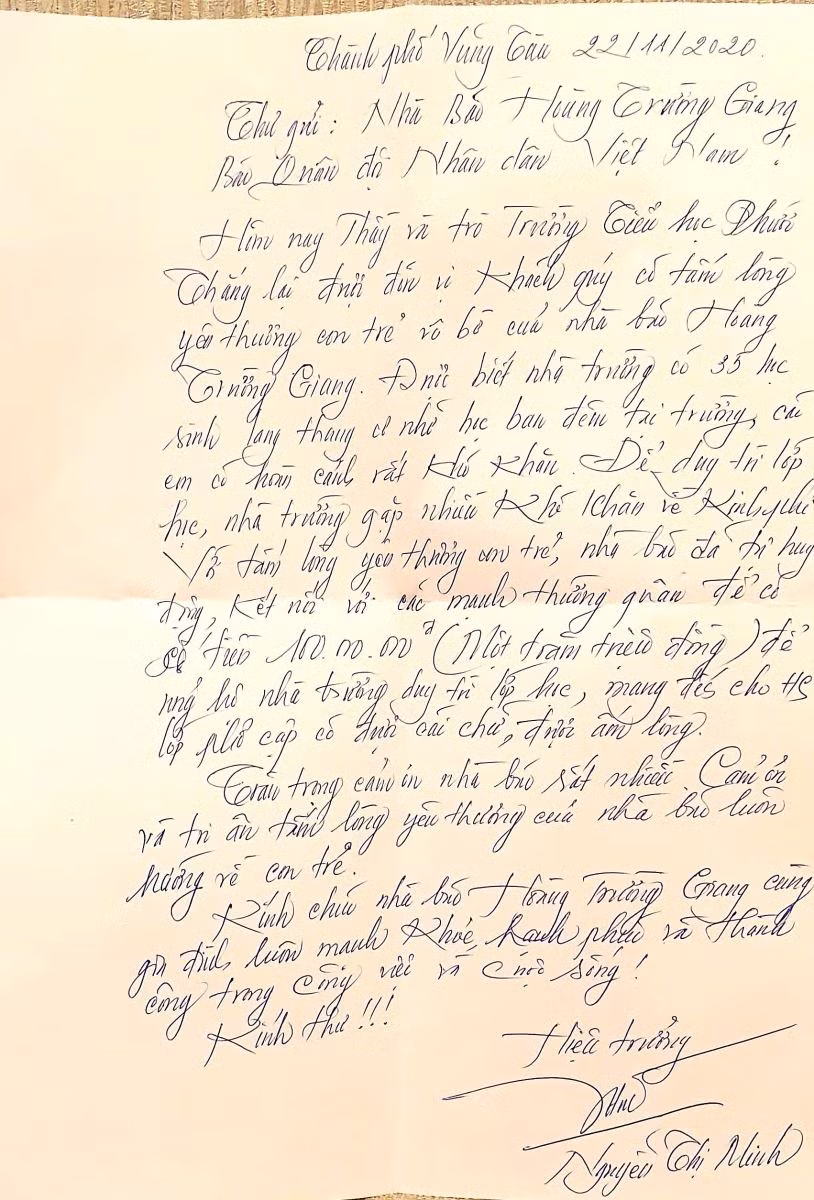 Thành phố Vũng Tàu 22/11/2020.
Thư gửi: Nhà Báo Hoàng Trường Giang
Báo Quân đội Nhân dân Việt Nam!
Hôm nay Thầy và trò Trường Tiểu học Phước
Thắng lại được đón vị khách quý có tấm lòng
yêu thương con trẻ vô bờ của nhà báo Hoàng
Trường Giang. Được biết nhà trường có 35 học
sinh lang thang cơ nhỡ học ban đêm tại trường, các
em có hoàn cảnh rất khó khăn. Để duy trì lớp
học, nhà trường gặp nhiều khó khăn về kinh phí
Với tấm lòng yêu thương con trẻ, nhà báo đã huy
động, kết nối với các mạnh thường quân để có
số tiền 100.000.000đ (Một trăm triệu đồng) để
ủng hộ nhà trường duy trì lớp học, mang đến cho HS
lớp phổ cập có được cái chữ, được ấm lòng.
Trân trọng cảm ơn nhà báo rất nhiều. Cảm ơn
và tri ân tấm lòng yêu thương của nhà báo luôn
hướng về con trẻ.
Kính chúc nhà báo Hoàng Trường Giang cùng
gia đình luôn mạnh khỏe, hạnh phúc và thành
công trong công việc và cuộc sống!
Kính thư!!!
Hiệu trưởng
Nguyễn Thị Minh